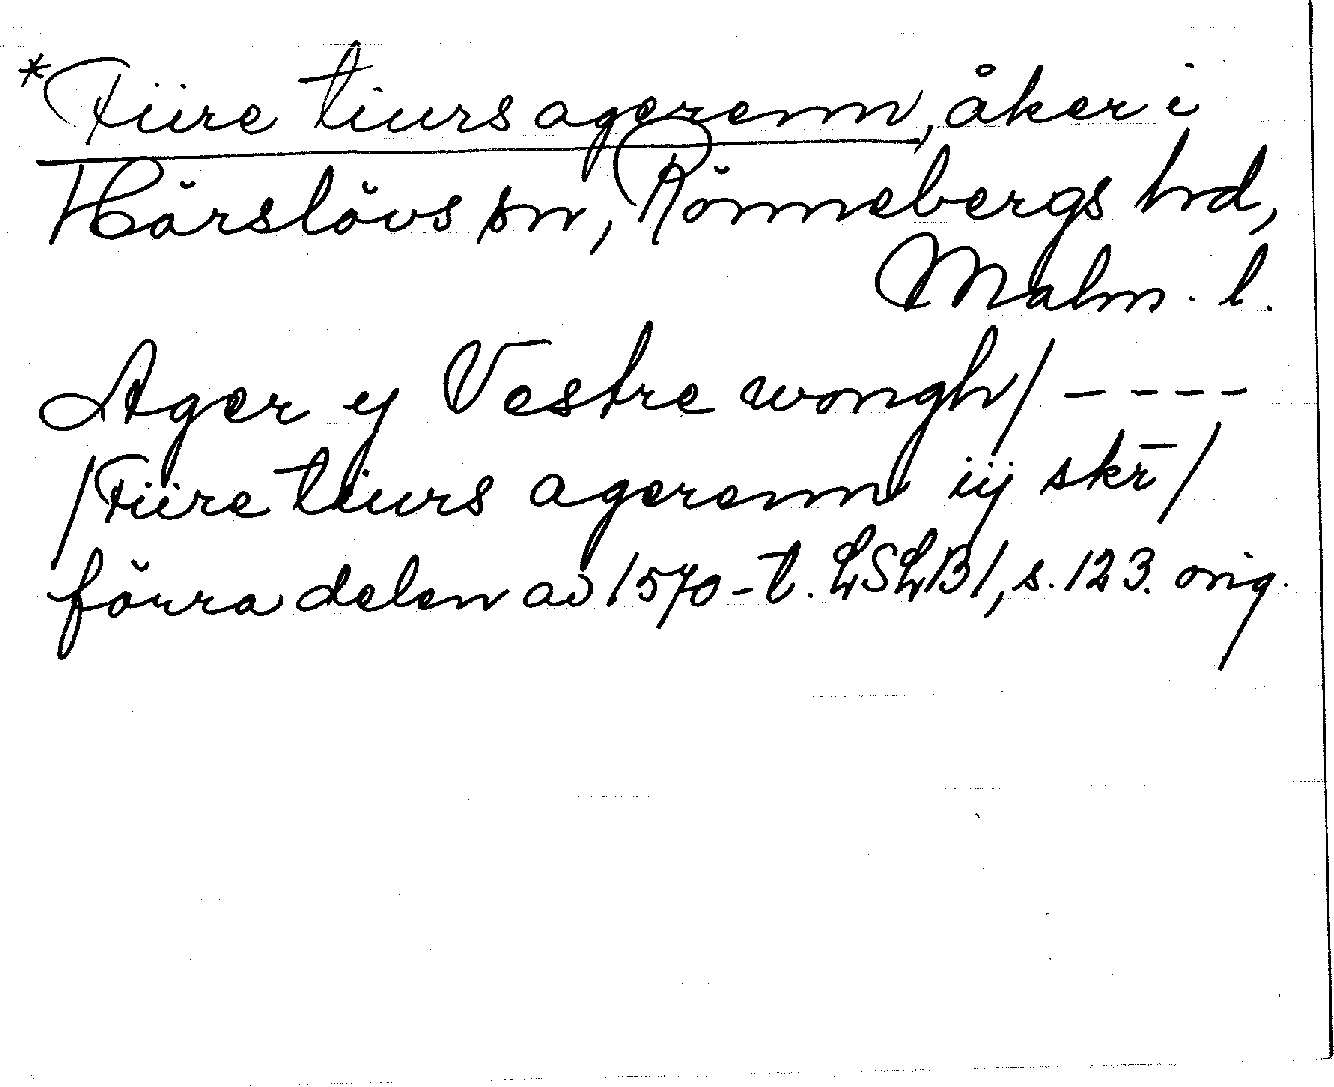 *Fiire tiurs agerenn, åker i
Härslövs sn, Rönnebergs hrd,
Malm. l.
Ager y Vestre wongh/ - - - -
/Fiire tiurs agerenn iij skr̄/
förra delen av 1570-t. LSLB1, s. 123. orig.